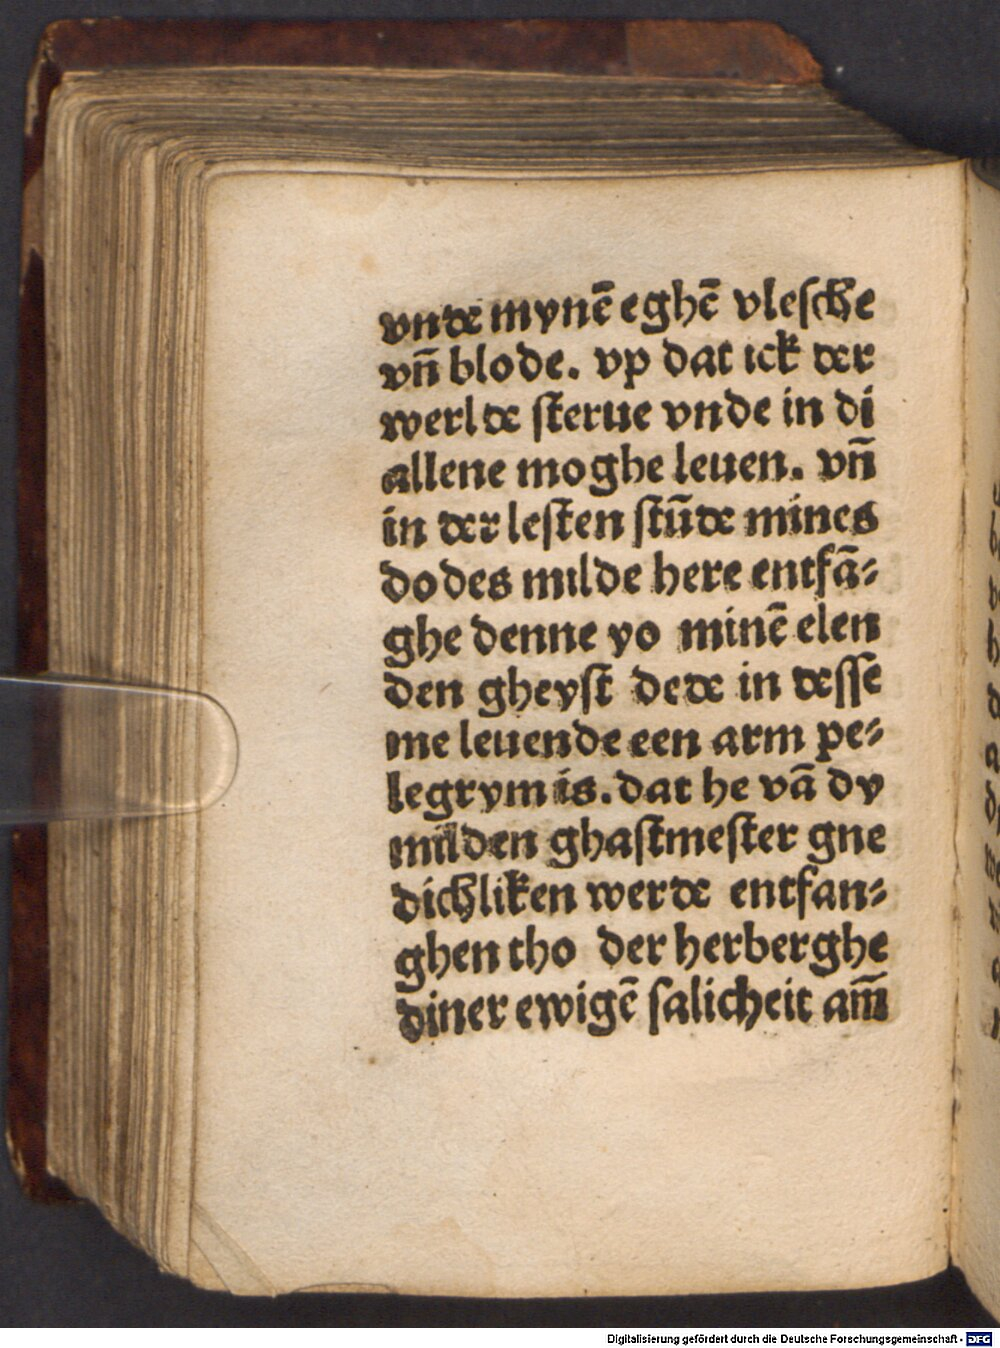 vnde mynē eghē vlesche
vn̄ blode. vp dat ick der
werlde sterue vnde in di
allene moghe leuen. vn̄
in der lesten stūde mines
dodes milde here entfā⸗
ghe denne yo minē elen
den gheyst dede in desse
me leuende een arm pe⸗
legrym is. dat he vā dy
milden ghastmester gne
dichliken werde entfan⸗
ghen tho der herberghe
diner ewigē salicheit am̄
Digitalisierung gefördert durch die Deutsche Forschungsgemeinschaft - DFG